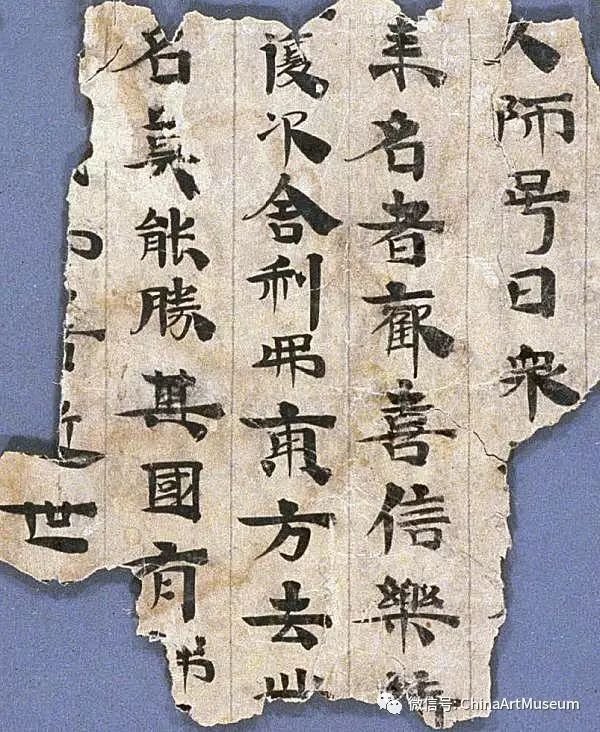 人師号曰衆
来名者歡喜信樂
復次舍利弗南方去此
名真能勝其國有佛
世
微信号: ChinaArtMuseum